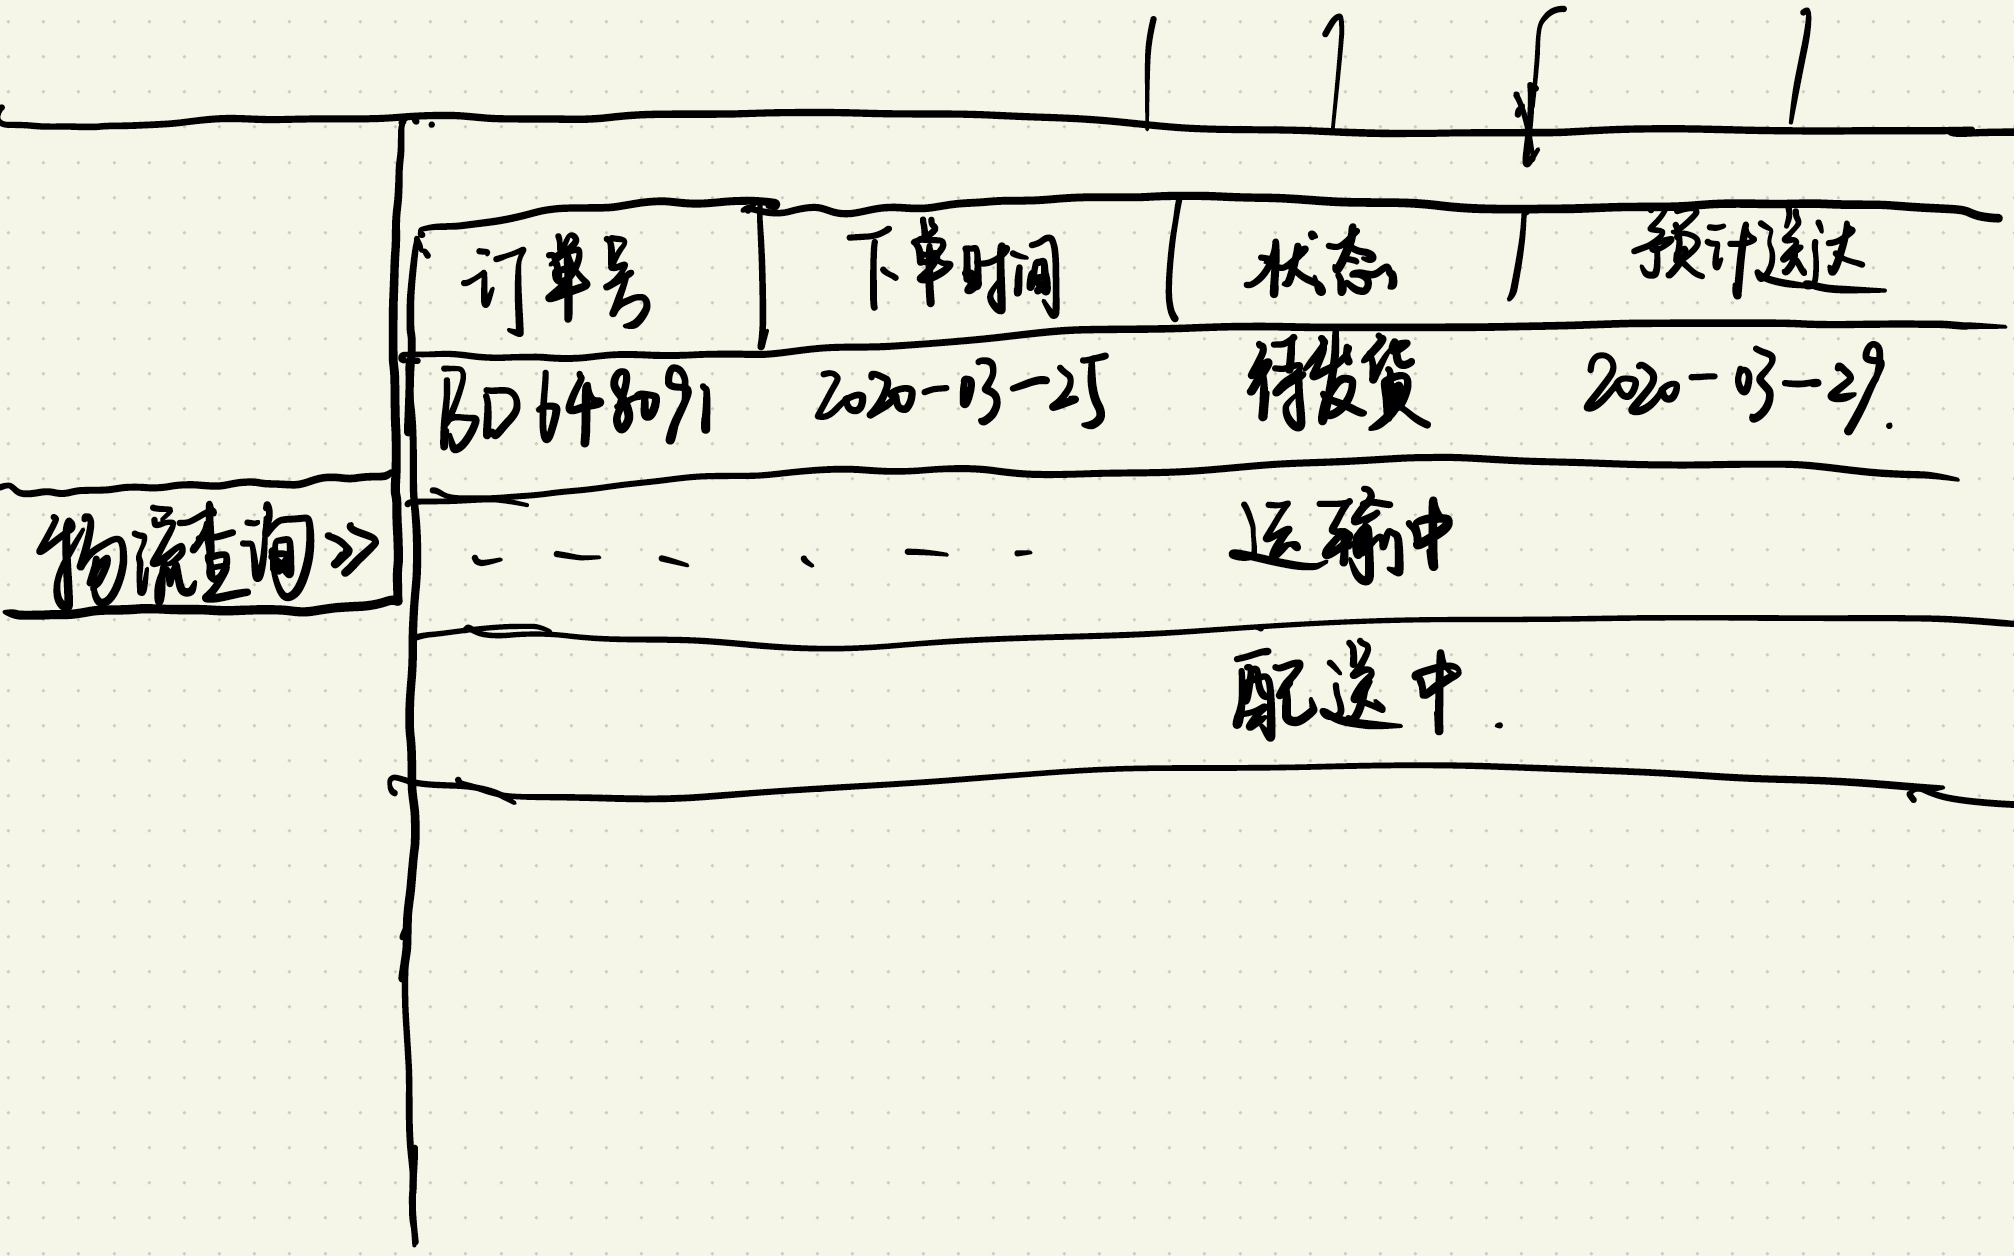 订单号 下单时间 状态 预计送达
BD648091 2020-03-25 待发货 2020-03-29.
物流查询>> - - - . - - 运输中
配送中.